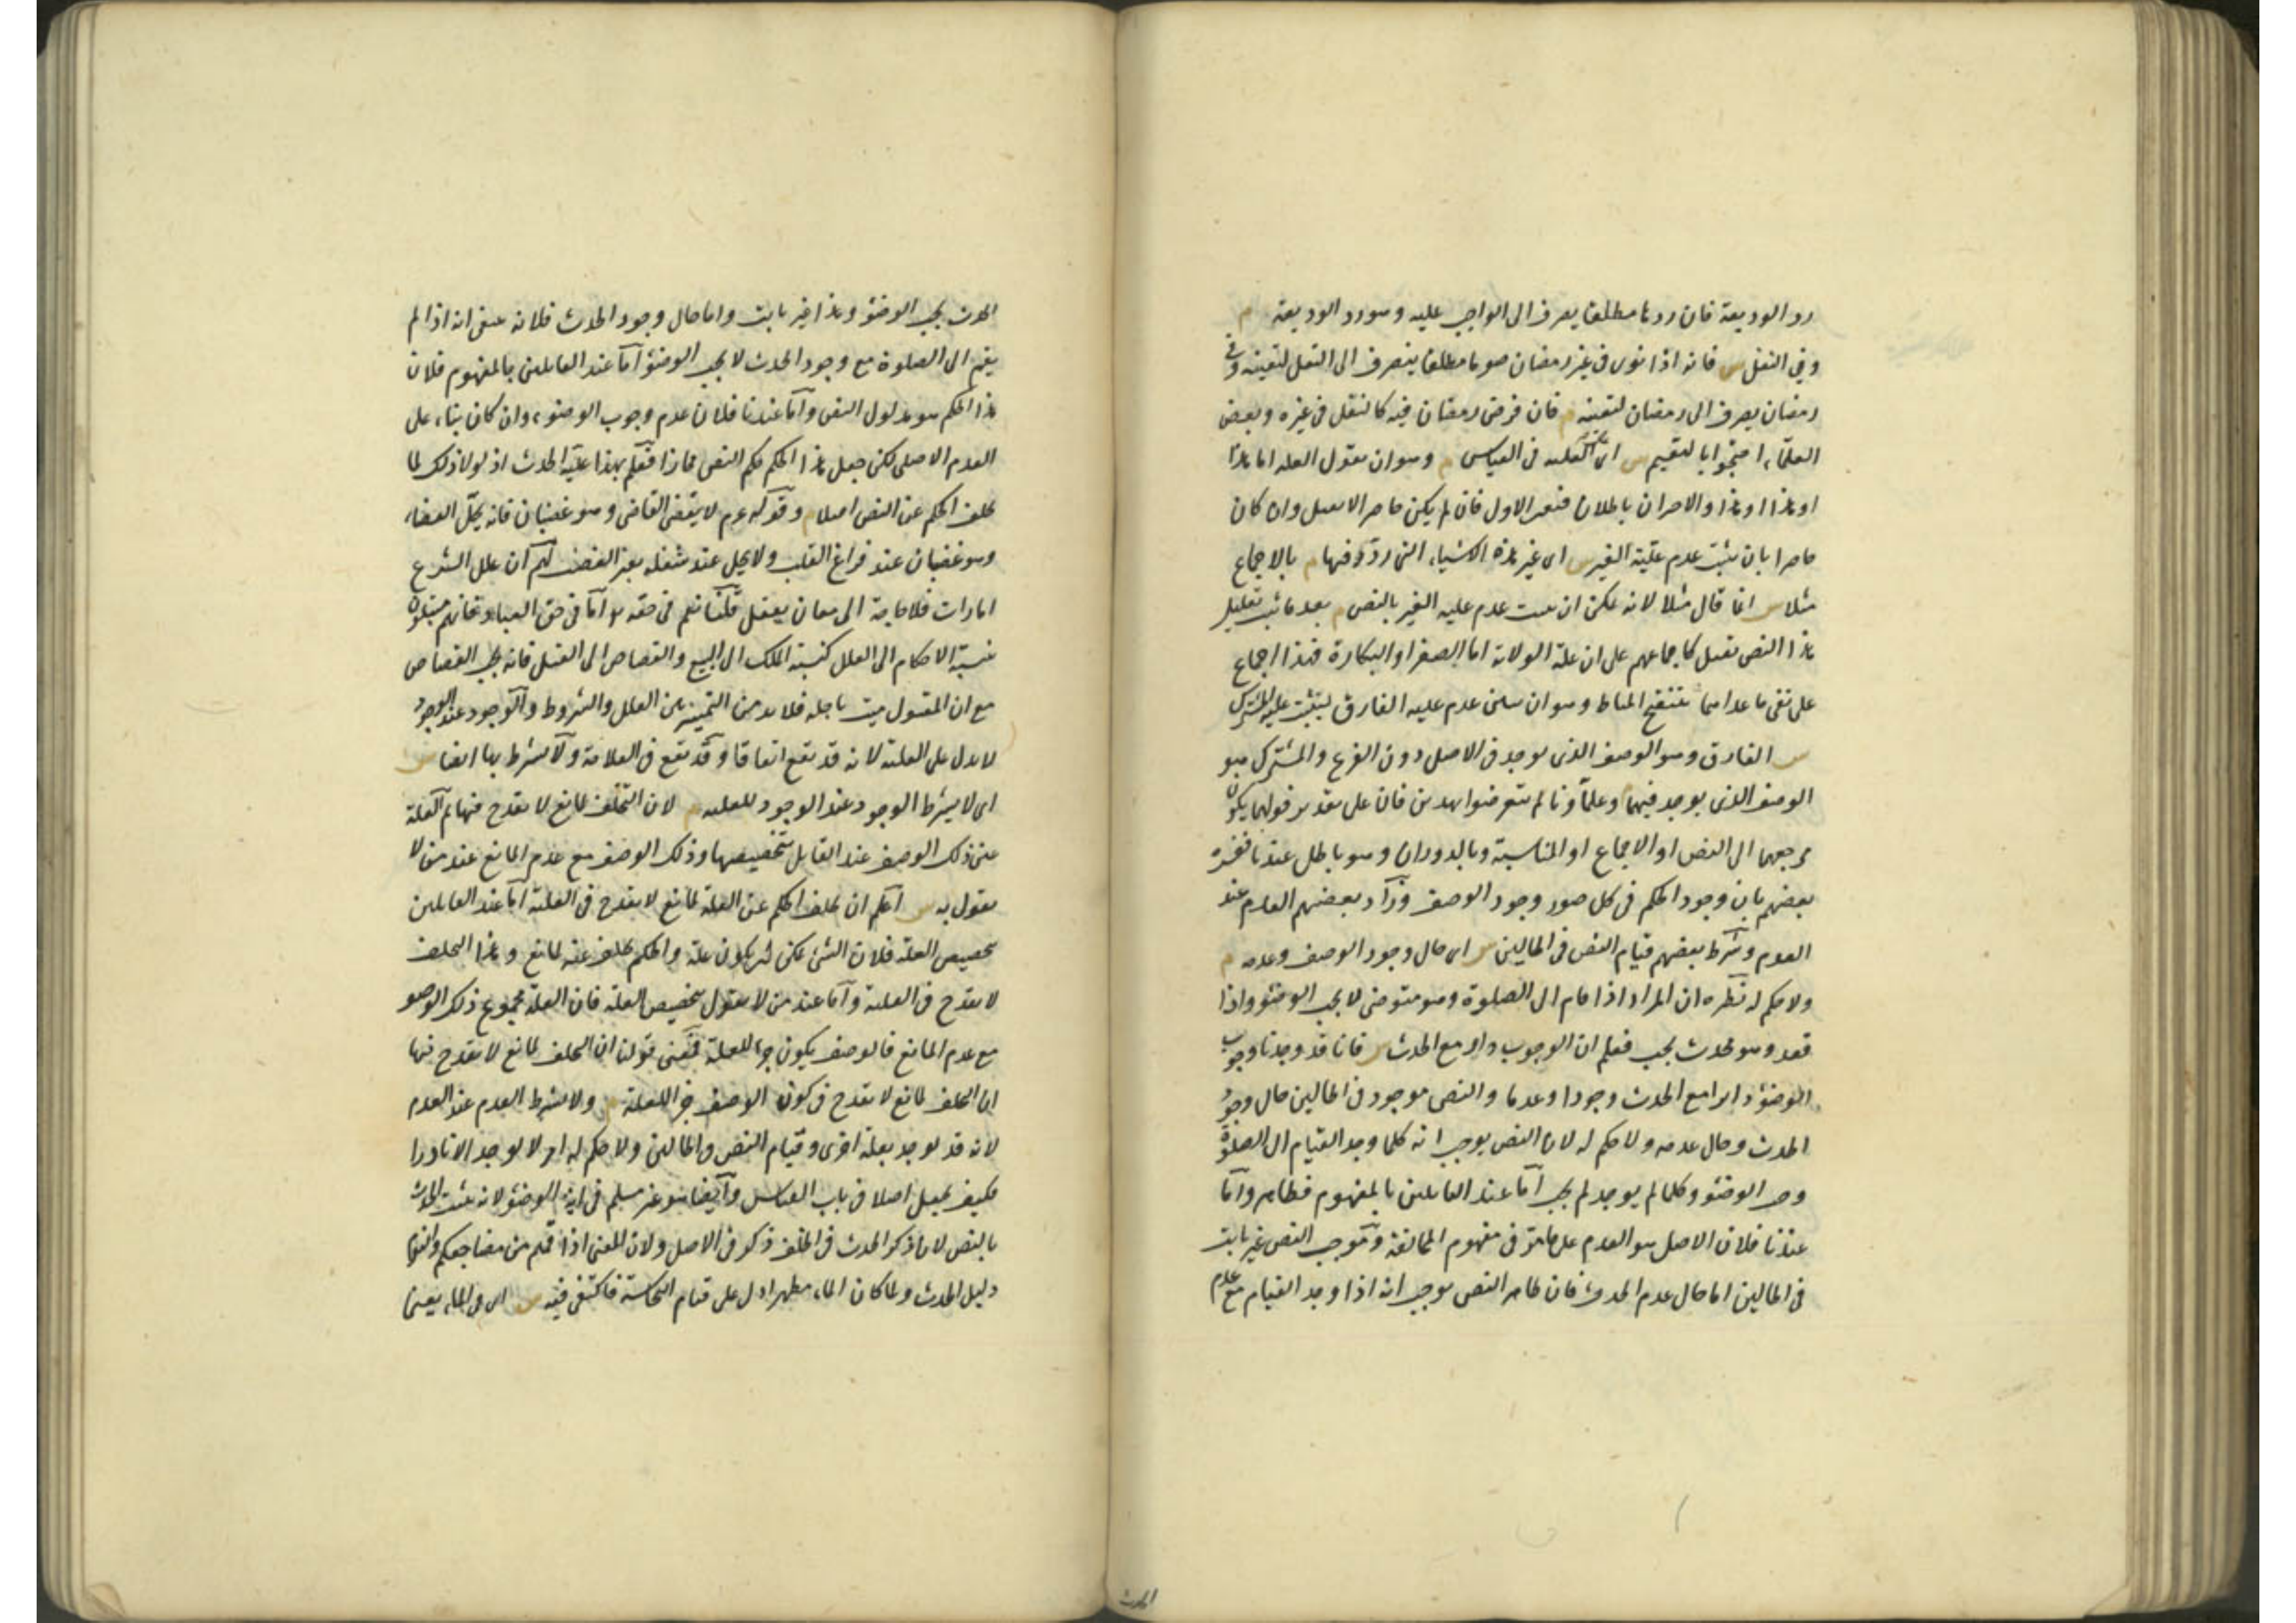 رد الوديعة فان ردها مطلقا يصرف الى الواجب عليه وهو رد الوديعة م
وفي النفل س فانه اذا نوى في غير رمضان صوما مطلقا ينصرف الى النفل لتعينه وفي
رمضان يصرف الى رمضان لتعينه م فان فرض رمضان فيه كالنفل في غيره وبعض
العلماء احتجوا بالتقسيم س اى على العلية في القياس م وهو ان يقول العلة اما هذا
او هذا او هذا والاخران باطلان فتعين الاول فان لم يكن حاصرا لا يقبل وان كان
حاصرا بان يثبت عدم علية الغير س اى غير هذه الاشياء التى ردد فيها م بالاجماع
مثلا س انما قال مثلا لانه يمكن ان يثبت عدم علية الغير بالنص م بعد ما ثبت تعليل
هذا النص يقبل كاجماعهم على ان علة الولاية اما الصغر او البكارة فهذا اجماع
على نفى ما عداهما وبتنقيح المناط وهو ان يبين عدم علية الفارق ليثبت علية المشترك
س الفارق هو الوصف الذى يوجد في الاصل دون الفرع والمشترك هو
الوصف الذى يوجد فيهما م وعلماؤنا لم يتعرضوا لهذين فان على تقدير قبولهما يكون
مرجعهما الى النص او الاجماع او المناسبة وبالدوران وهو باطل عندنا ففسره
بعضهم بان وجود الحكم في كل صور وجود الوصف وزاد بعضهم العدم عند
العدم وشرط بعضهم قيام النص في الحالين س اى حال وجود الوصف وعدمه م
ولا حكم له نظيره ان المراد اذا قام الى الصلوة وهو متوضئ لا يجب الوضوء واذا
قعد وهو محدث يجب فعلم ان الوجوب دار مع الحدث س فانا قد وجدنا وجوب
الوضوء دائرا مع الحدث وجودا وعدما والنص موجود في الحالين حال وجود
الحدث وحال عدمه ولا حكم له لان النص يوجب انه كلما وجد القيام الى الصلوة
وجب الوضوء وكلما لم يوجد لم يجب اما عند القائلين بالمفهوم فظاهر واما
عندنا فلان الاصل هو العدم على ما مر في مفهوم المخالفة وموجب النص غير ثابت
في الحالين اما حال عدم الحدث فان ظاهر النص يوجب انه اذا وجد القيام مع عدم
الحدث
الحدث يجب الوضوء وهذا غير ثابت واما حال وجود الحدث فلانه يقتضى انه اذا لم
يقم الى الصلوة مع وجود الحدث لا يجب الوضوء اما عند القائلين بالمفهوم فلان
هذا الحكم هو مدلول النص واما عندنا فلان عدم وجوب الوضوء وان كان بناء على
العدم الاصلى لكن جعل هذا الحكم حكم النص مجازا فعلم بهذا علية الحدث اذ لولا ذلك لما
تخلف الحكم عن النص اصلا م وقوله عم لا يقضى القاضى وهو غضبان فانه يحل القضاء
وهو غضبان عند فراغ القلب ولا يحل عند شغله بغير الغضب لهم ان علل الشرع
امارات فلا حاجة الى معان يعقل قلنا نعم في حقه تع اما في حق العباد فانهم مبتلون
بنسبة الاحكام الى العلل كنسبة الملك الى البيع والقصاص الى القتل فانه يجب القصاص
مع ان المقتول ميت باجله فلا بد من التمييز بين العلل والشروط والوجود عند الوجود
لا يدل على العلية لانه قد يقع اتفاقا وقد يقع في العلامة ولا يشترط بها ايضا س
اى لا يشترط الوجود عند الوجود للعلية م لان التخلف لمانع لا يقدح فيها ثم العلة
عين ذلك الوصف عند القائل بتخصيصها وذلك الوصف مع عدم المانع عند من لا
يقول به س اعلم ان تخلف الحكم عن العلة لمانع لا يقدح في العلية اما عند القائلين
بتخصيص العلة فلان الشئ يمكن ان يكون علة والحكم تخلف عنه لمانع وهذا التخلف
لا يقدح في العلية واما عند من لا يقول بتخصيص العلة فان العلة مجموع ذلك الوصف
مع عدم المانع فالوصف يكون جزء للعلة فمعنى قولنا ان التخلف لمانع لا يقدح فيها
ان التخلف لمانع لا يقدح في كون الوصف جزءا للعلة م ولا يشترط العدم عند العدم
لانه قد يوجد بعلة اخرى وقيام النص في الحالين ولا حكم له امر لا يوجد الا نادرا
فكيف يجعل اصلا في باب القياس وايضا هو غير مسلم في اية الوضوء لانه يثبت الحدث
بالنص لان ذكر الحدث في الخلف ذكر في الاصل ولان المعنى اذا قمتم من مضاجعكم والنوم
دليل الحدث ولما كان الماء مطهرا دل على قيام النجاسة فاكتفى فيه س اى في الماء يعنى